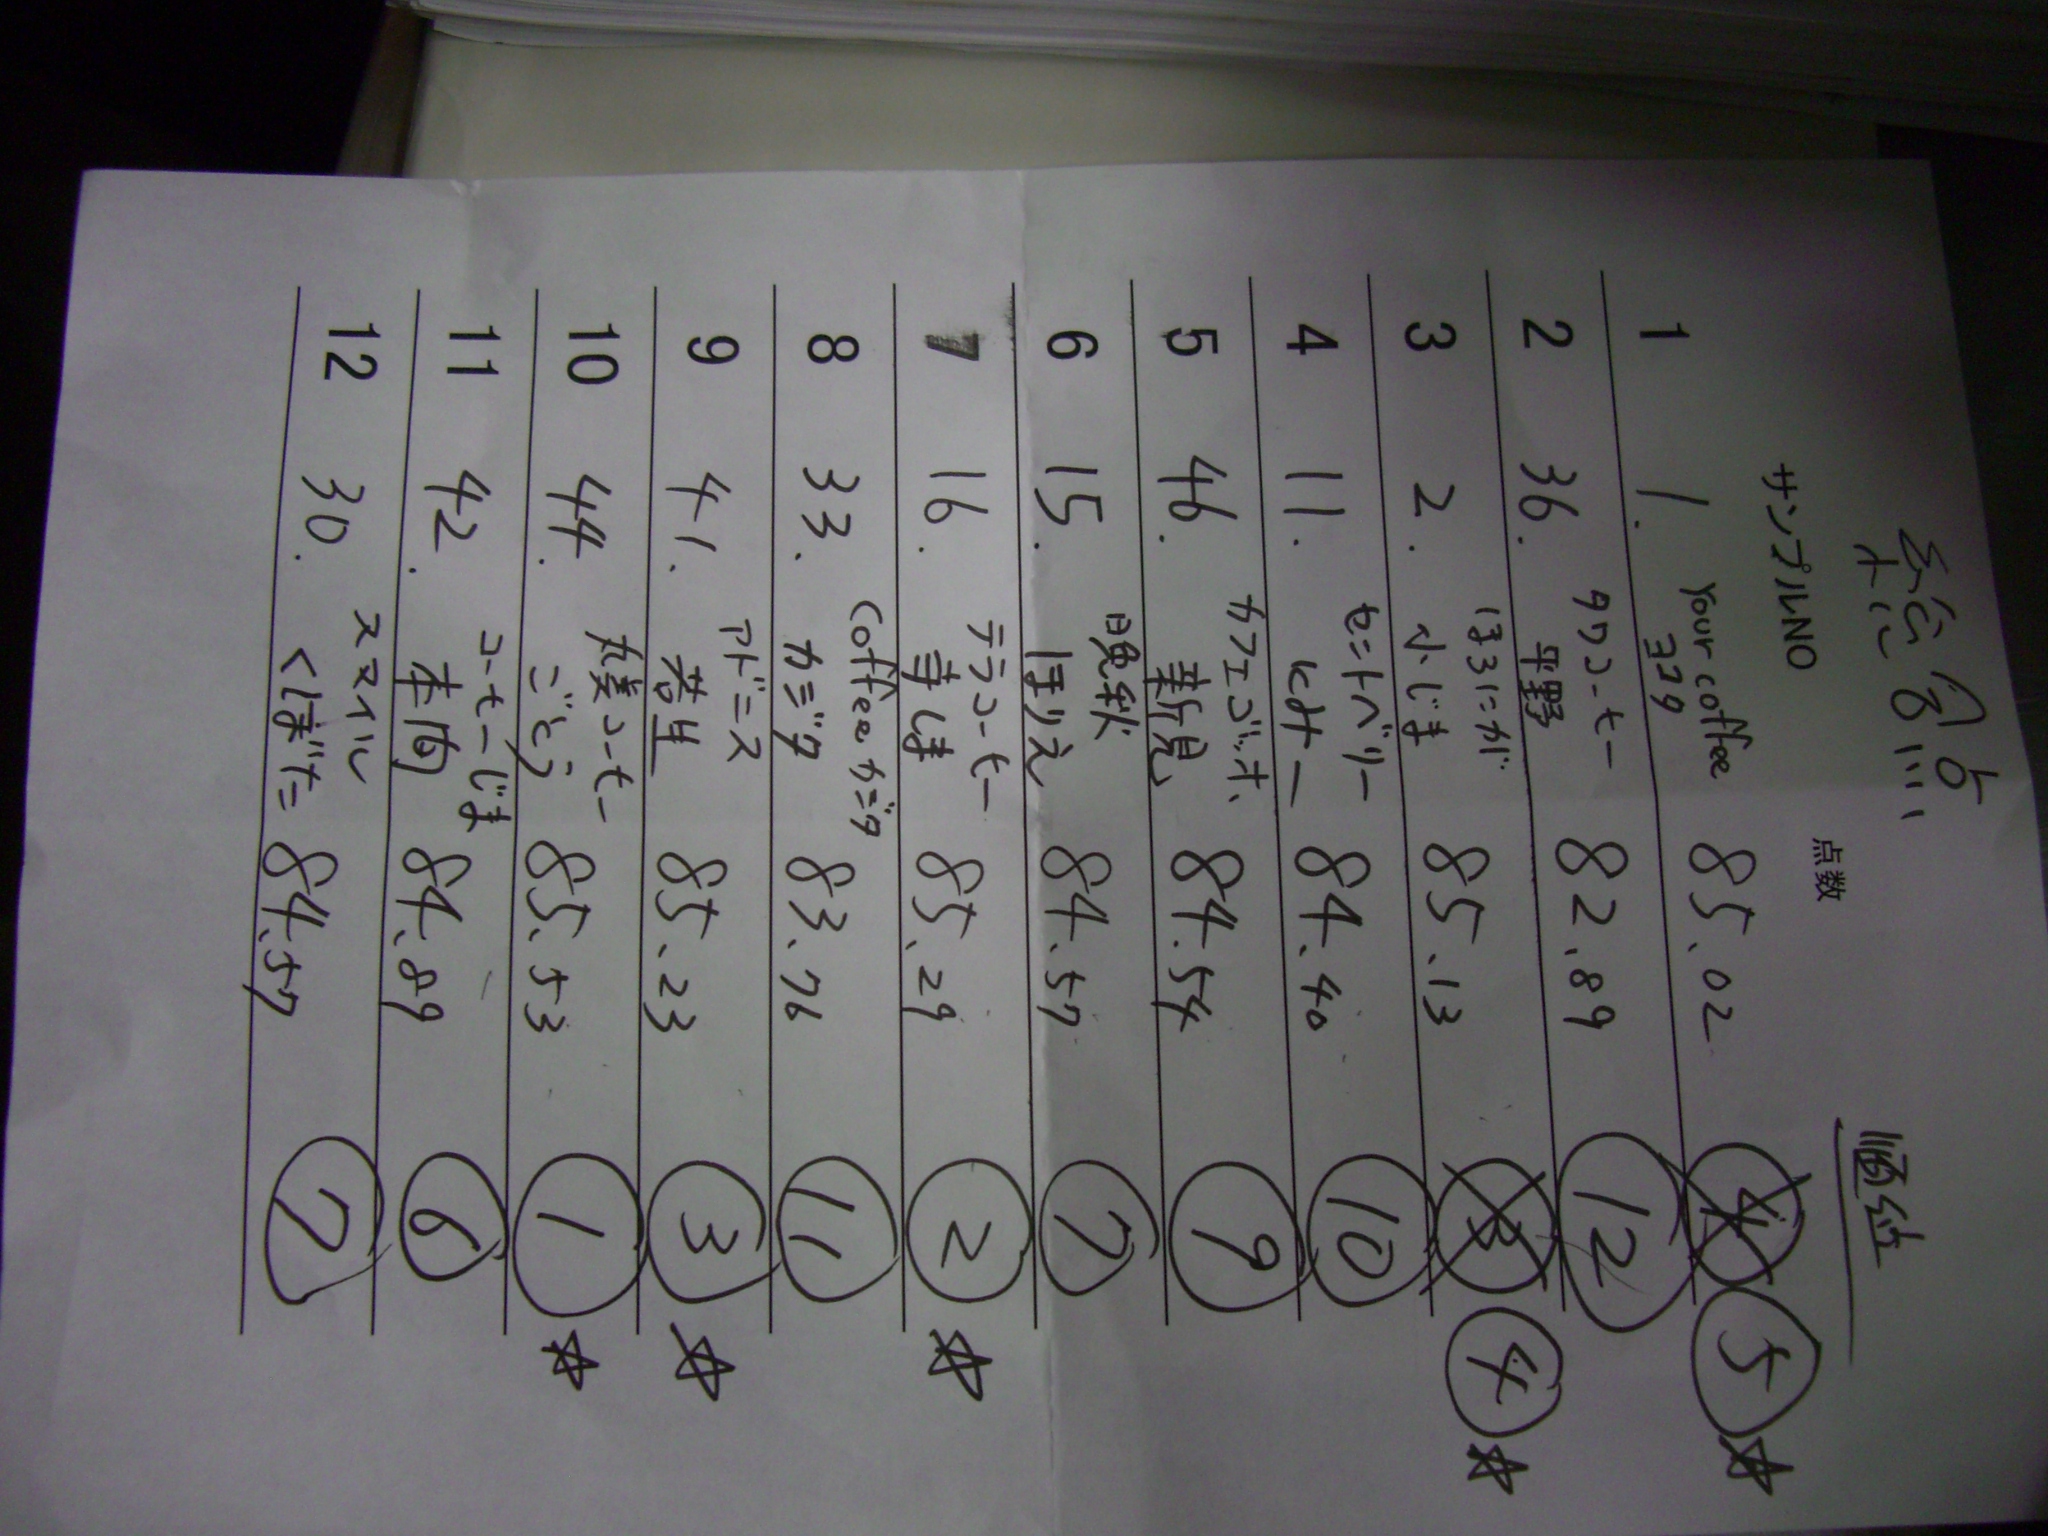 総合点
サンプルNO 点数 順位
1 1. Your coffee ヨコタ 85.02 5 ☆
2 36. タワコーヒー 平野 82.89 12
3 2. ほろにが 小じま 85.13 4 ☆
4 11. セントベリー 84.40 10
5 46. カフェゴッホ 新見 84.54 9
6 15. 晩秋 ほりえ 84.57 7
7 16. テラコーヒー 寺じま 85.29 2 ☆
8 33. Coffee カジタ カジタ 83.76 11
9 41. アドニス 若生 85.23 3 ☆
10 44. 丸美コーヒー ごとう 85.53 1 ☆
11 42. コーヒーじま 本間 84.89 6
12 30. スマイル くぼた 84.57 7